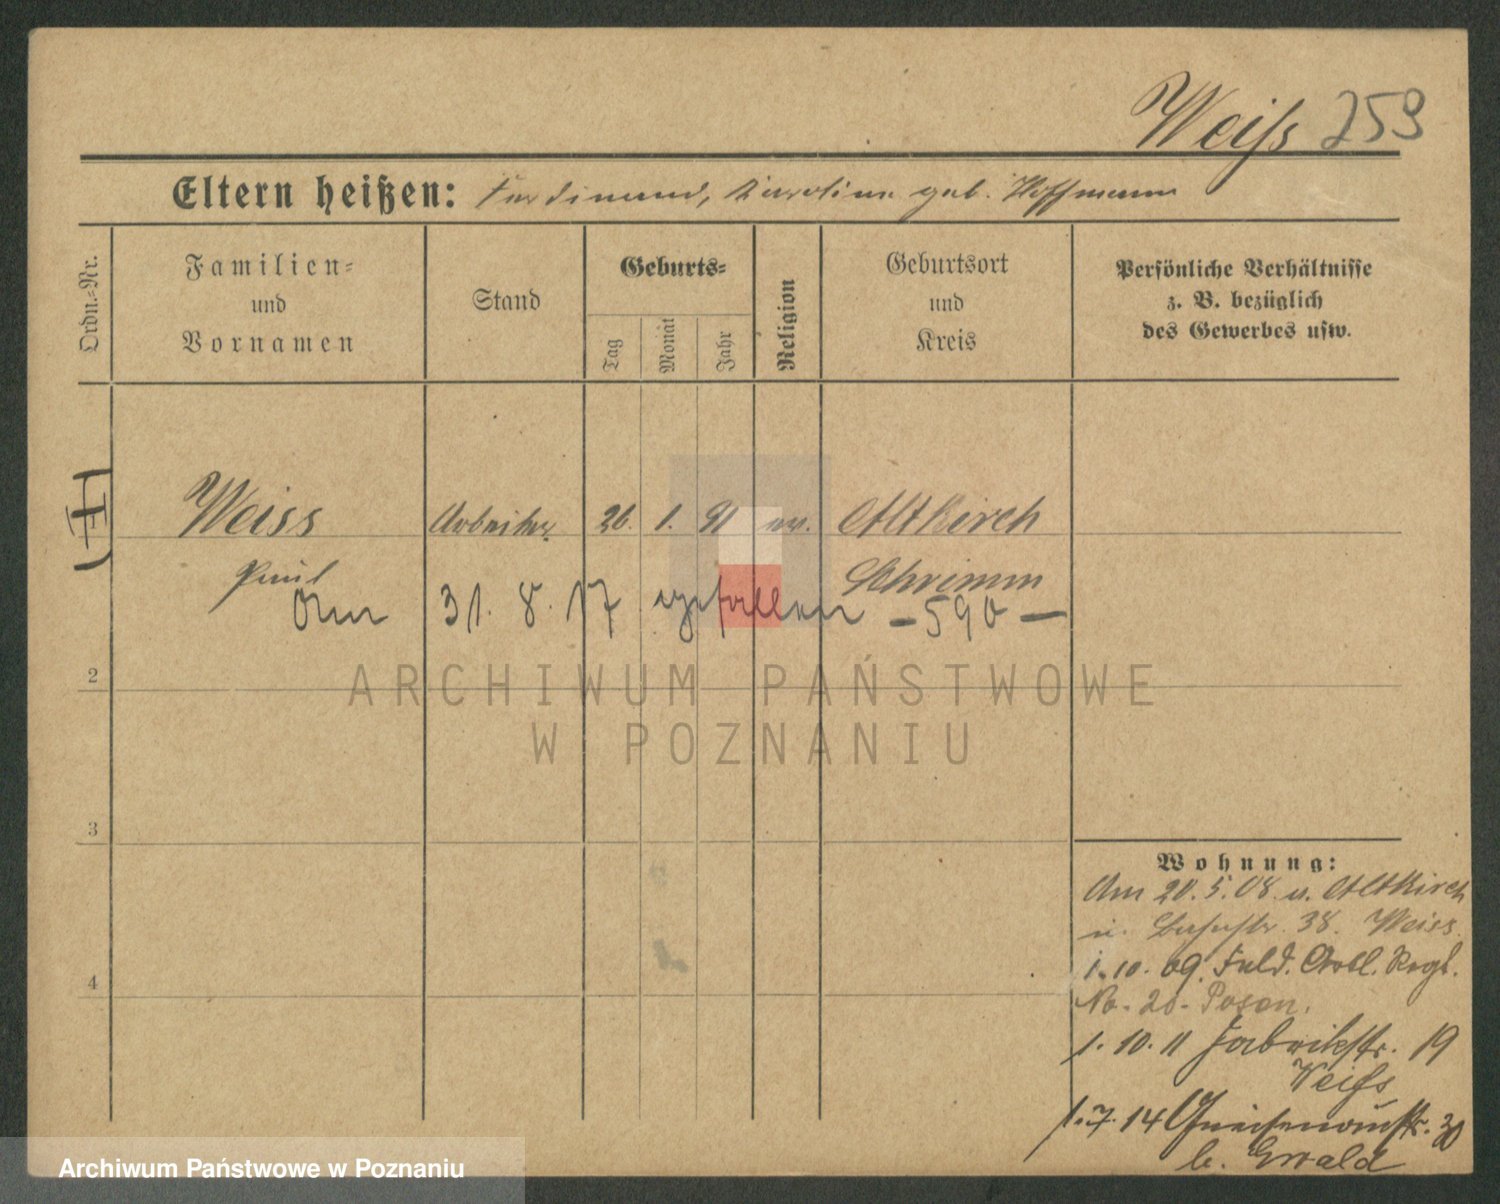 Weiſs 253
Eltern heißen: Ferdinand, Karoline geb. Hoffmann
Ordn.-Nr.
Familien-
und
Vornamen
Stand
Geburts-
Tag
Monat
Jahr
Religion
Geburtsort
und
Kreis
Persönliche Verhältnisse
z. B. bezüglich
des Gewerbes usw.
Weiss Arbeiter 26. 1. 91 ev. Altkirch
Paul Schrimm
Am 31. 8. 17 gefallen – 590 –
2
3
4
Wohnung:
Am 20. 5. 08 v. Altkirch
n. 38. Weiss
1. 10. 09. Feld. Artl. Regt.
No. 20. Posen.
1. 10. 11 Fabrikstr. 19
Weiſs
1. 7. 14 Gneisenaustr. 30
b. Ewald
ARCHIWUM PAŃSTWOWE
W POZNANIU
Archiwum Państwowe w Poznaniu